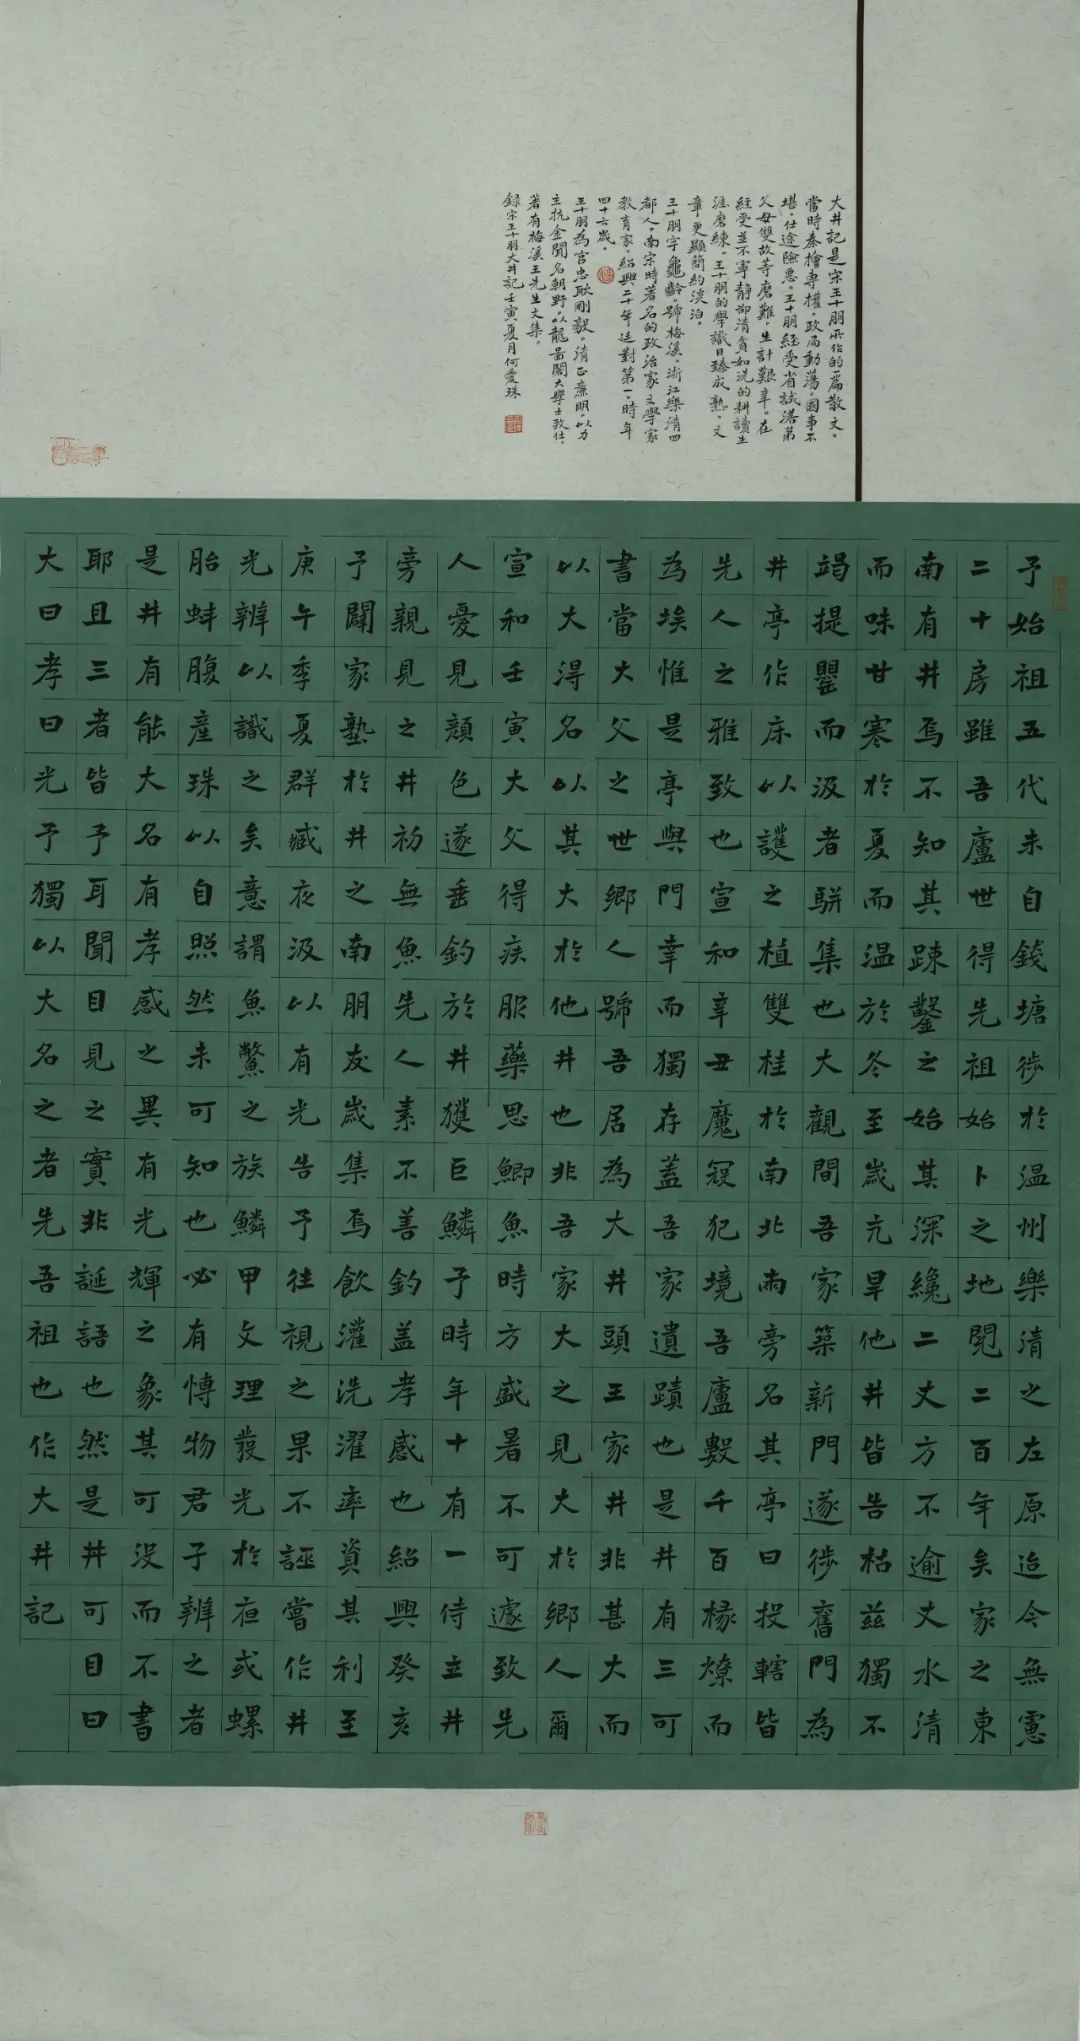 大井記是宋王十朋所作的一篇散文。
當時秦檜專權，政局動蕩，國事不
堪，仕途險惡。王十朋經受省試落第
父母雙故等磨難，生計艱辛。在
經受並不寧靜卻清貧如洗的耕讀生
涯磨練，王十朋的學識日臻成熟，文
章更顯簡約淡泊。
王十朋字龜齡，號梅溪，浙江樂清四
都人，南宋時著名的政治家文學家
教育家，紹興二十年廷對第一，時年
四十六歲。
王十朋為官忠耿剛毅，清正廉明，以力
主抗金聞名朝野，以龍圖閣大學士致仕，
著有梅溪王先生文集。
録宋王十朋大井記壬寅夏月何愛珠
予始祖五代未自錢塘徙於温州樂清之左原迨今無慮
二十房雖吾廬世得先祖始卜之地閱二百年矣家之東
南有井焉不知其踈鑿之始其深纔二丈方不逾丈水清
而味甘寒於夏而温於冬至歲亢旱他井皆告枯兹獨不
竭提甖而汲者駢集也大觀間吾家築新門遂徙舊門為
井亭作床以護之植雙桂於南北兩旁名其亭曰投轄皆
先人之雅致也宣和辛丑魔寇犯境吾廬數千百椽燎而
為埃惟是亭與門幸而獨存蓋吾家遺蹟也是井有三可
書當大父之世鄉人號吾居為大井頭王家井非甚大而
以大得名以其大於他井也非吾家大之見大於鄉人爾
宣和壬寅大父得疾服藥思鯽魚時方盛暑不可遽致先
人憂見顔色遂垂釣於井獲巨鱗予時年十有一侍立井
旁親見之井初無魚先人素不善釣盖孝感也紹興癸亥
予闢家塾於井之南朋友歲集焉飲灌洗濯率資其利至
庚午季夏群臧夜汲以有光告予往視之果不誣嘗作井
光辨以識之矣意謂魚鱉之族鱗甲文理發光於夜或螺
胎蚌腹產珠以自照然未可知也必有博物君子辨之者
是井有能大名有孝感之異有光輝之象其可没而不書
耶且三者皆予耳聞目見之實非誕語也然是井可目曰
大曰孝曰光予獨以大名之者先吾祖也作大井記